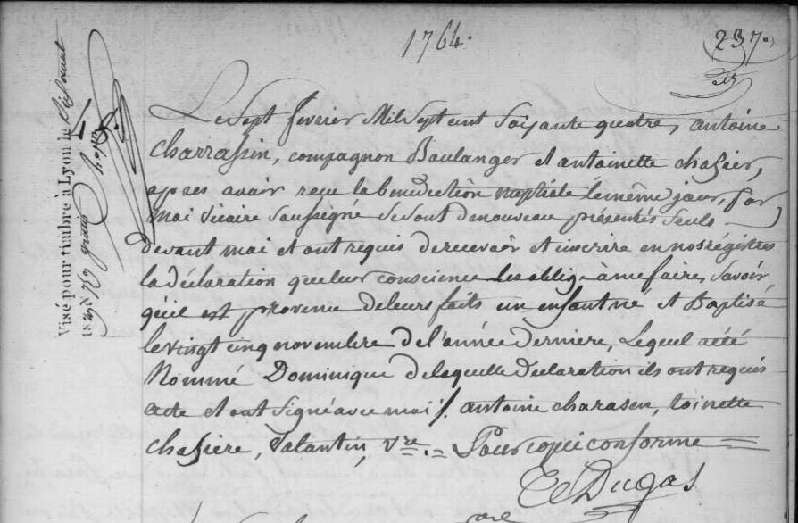 1764.
237.
Le Sept fevrier Mil Sept cent Soixante quatre, antoine
Charrassin, compagnon Boulanger et antoinette chasier,
apres avoir reçu la benediction nuptiale le même jour, par
moi vicaire Soussigné Se Sont de nouveau présentés Seuls
devant moi et ont requis de recevoir et inscrire en nos régistres
la déclaration que leur conscience les oblige à me faire, Savoir
qu'il est provenu de leurs faits un enfant né et Baptisé
le vingt cinq novembre de l'année derniere, Lequel a été
Nommé Dominique de laquelle declaration ils ont requis
acte et ont Signé avec moi /. antoine charasen, toinette
chasiere, Talantin, Vre. = Pour copie conforme =
Dugas
Visé pour timbre à Lyon le